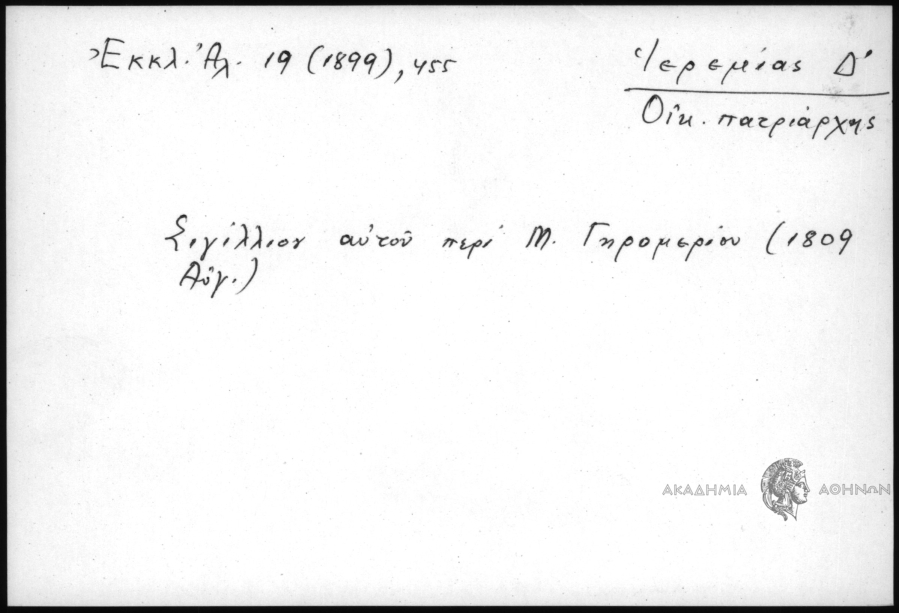 Ἐκκλ. Ἀλ. 19 (1899), 455
Ἱερεμίας Δ'
Οἰκ. πατριάρχης
Σιγίλλιον αὐτοῦ περὶ Μ. Γηρομερίου (1809
Αὔγ.)
ΑΚΑΔΗΜΙΑ ΑΘΗΝΩΝ